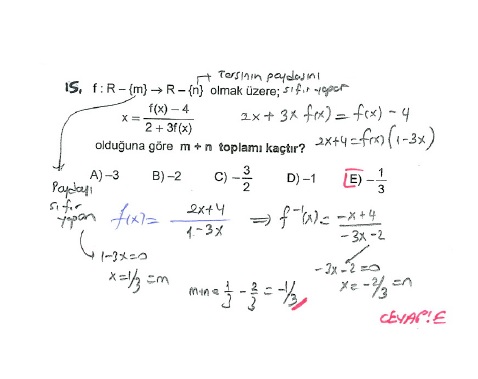 Tersinin paydasını
15. f : R – {m} → R – {n} olmak üzere; sıfır yapan
x = f(x) – 4 / 2 + 3f(x)
2x + 3x f(x) = f(x) – 4
2x+4 = f(x) (1-3x)
olduğuna göre m + n toplamı kaçtır?
A) –3 B) –2 C) – 3/2 D) –1 E) – 1/3
Paydayı
sıfır
yapan
f(x) = 2x+4 / 1-3x ⇒ f⁻¹(x) = -x+4 / -3x-2
1-3x=0
x=1/3=m
-3x-2=0
x=-2/3=n
m+n= 1/3 - 2/3 = -1/3
CEVAP: E